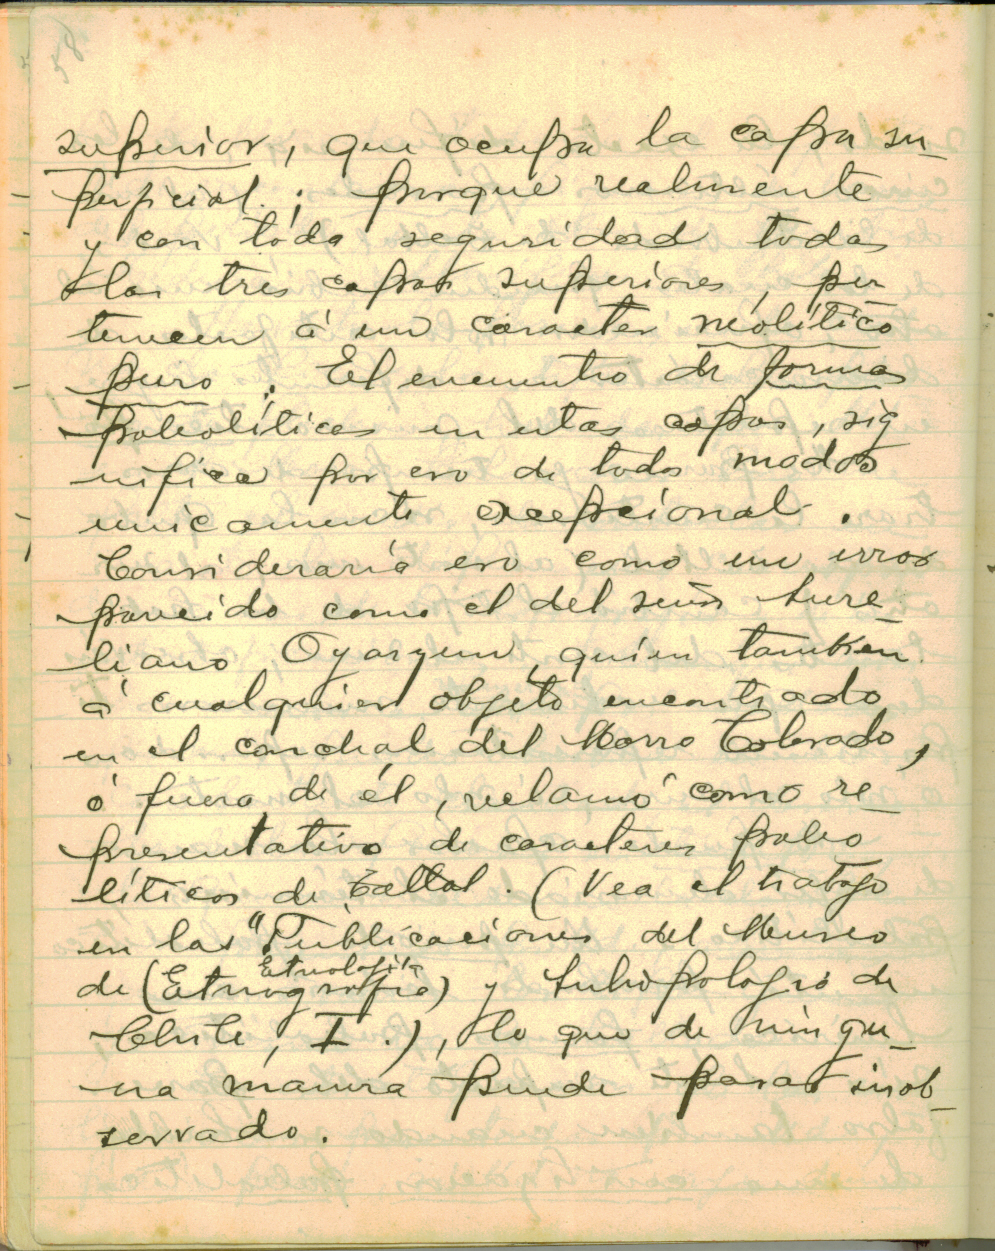 58
superior, que ocupa la capa su-
perficial.; porque realmente
y con toda seguridad todas
las tres capas superiores, per
tenecen á un caracter néolítico
puro. El encuentro de formas
paleolíticas en estas capas, sig
nifica por eso de todos modos
unicamente excepcional.
Consideraría eso como un error
parecido como el del señor Aure
liano Oyarzun, quien también
á cualquier objeto encontrado
en el conchal del Morro Colorado,
ó fuera de él, reclamó como re-
presentativo de caracteres paleo
líticos de Taltal. (Vea el trabajo
en las "Publicaciones del Museo
Etnología
de (Etnografía) y Antropología de
Chile, I.), lo que de ningu-
na manera puede pasar inob-
servado.